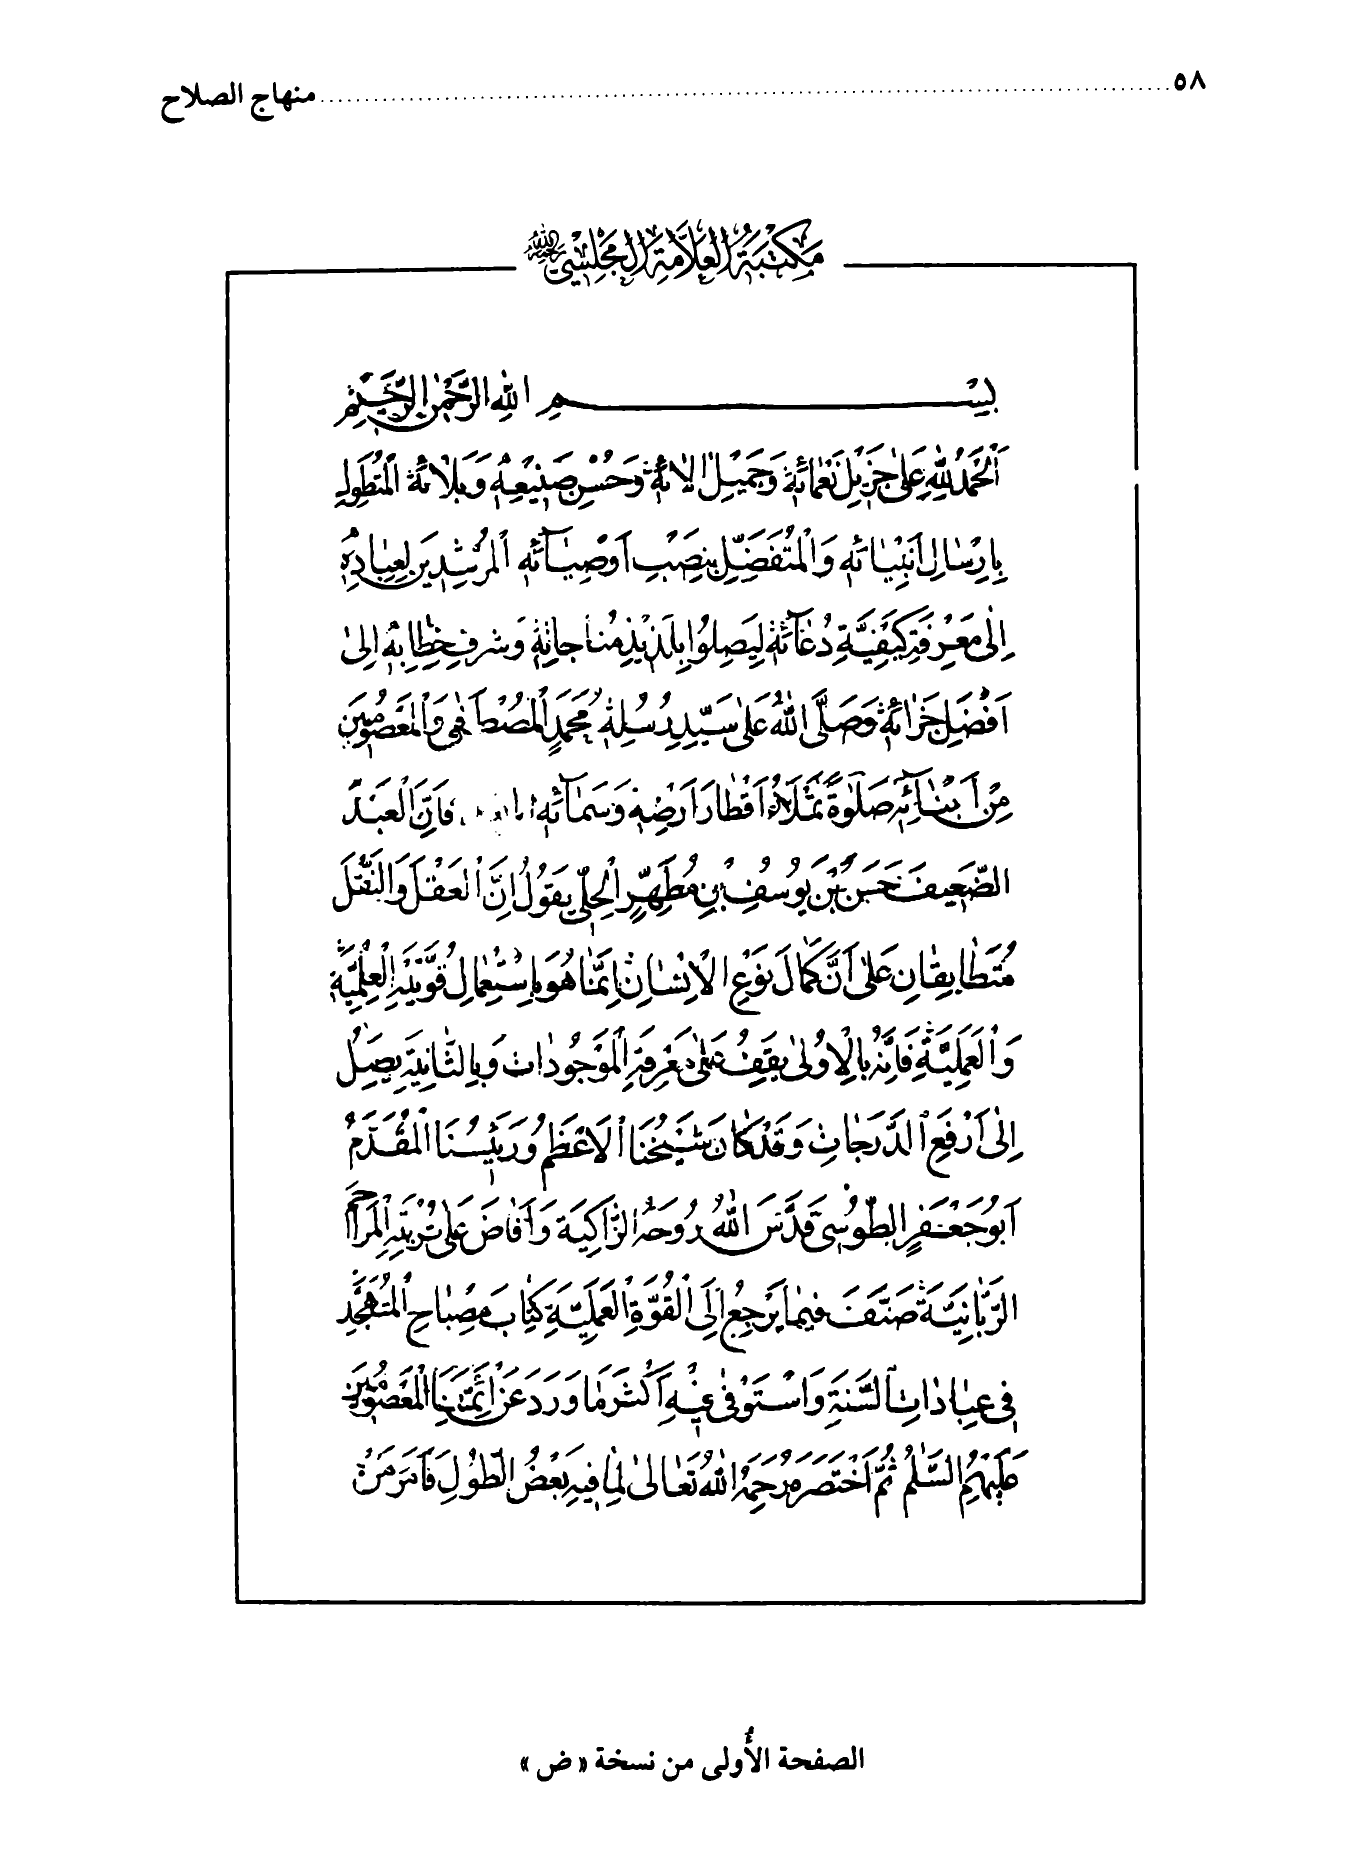 ٥٨ منهاج الصلاح
مَكْتَبَةُ الْعَلَّامَةِ الْمَجْلِسِيّ رحمه الله
بِسْمِ اللهِ الرَّحْمٰنِ الرَّحِيْمِ
اَلْحَمْدُ لِلّٰهِ عَلىٰ جَزِيْلِ نَعْمٰائِهٖ وَجَمِيْلِ اٰلاٰئِهٖ وَحُسْنِ صَنِيْعِهٖ وَبَلاٰئِهٖ الْمُتَطَوِّلِ
بِاِرْسٰالِ اَنْبِيٰائِهٖ وَالْمُتَفَضِّلِ بِنَصْبِ اَوْصِيٰائِهٖ الْمُرْشِدِيْنَ لِعِبٰادِهٖ
اِلىٰ مَعْرِفَةِ كَيْفِيَّةِ دُعٰائِهٖ لِيَصِلُوا بِلَذِيْذِ مُنٰاجٰاتِهٖ وَشَرَفِ خِطٰابِهٖ اِلىٰ
اَفْضَلِ جَزٰائِهٖ وَصَلَّى اللهُ عَلىٰ سَيِّدِ رُسُلِهٖ مُحَمَّدٍ الْمُصْطَفىٰ وَالْمَعْصُوْمِيْنَ
مِنْ اَبْنٰائِهٖ صَلٰوةً تَمْلَأُ اَقْطٰارَ اَرْضِهٖ وَسَمٰائِهٖ فَاِنَّ الْعَبْدَ
الضَّعِيفَ حَسَنَ بْنَ يُوسُفِ بْنِ مُطَهَّرٍ الْحِلِّي يَقُوْلُ اِنَّ الْعَقْلَ وَالنَّقْلَ
مُتَطٰابِقٰانِ عَلىٰ اَنَّ كَمٰالَ نَوْعِ الْاِنْسٰانِ اِنَّمٰا هُوَ بِاِسْتِعْمٰالِ قُوَّتَيْهِ الْعِلْمِيَّةِ
وَالْعَمَلِيَّةِ فَاِنَّهُ بِالْاُوْلىٰ يَقِفُ عَلىٰ مَعْرِفَةِ الْمَوْجُودٰاتِ وَبِالثّٰانِيَةِ يَصِلُ
اِلىٰ اَرْفَعِ الدَّرَجٰاتِ وَقَدْ كٰانَ شَيْخُنَا الْاَعْظَمُ وَرَئِيْسُنَا الْمُقَدَّمُ
اَبُوْ جَعْفَرٍ الطُّوْسِيُّ قَدَّسَ اللهُ رُوْحَهُ الزّٰاكِيَةَ وَاَفٰاضَ عَلىٰ تُرْبَتِهِ الْمَرٰاحِمَ
الرَّبّٰانِيَّةَ صَنَّفَ فِيمٰا يَرْجِعُ اِلَى الْقُوَّةِ الْعَمَلِيَّةِ كِتٰابَ مِصْبٰاحِ الْمُتَهَجِّدِ
فِي عِبٰادٰاتِ السَّنَةِ وَاسْتَوْفىٰ فِيْهِ اَكْثَرَ مٰا وَرَدَ عَنْ اَئِمَّتِنَا الْمَعْصُوْمِيْنَ
عَلَيْهِمُ السَّلٰمُ ثُمَّ اخْتَصَرَهُ رَحِمَهُ اللهُ تَعٰالىٰ لِمٰا فِيهِ بَعْضُ الطُّوْلِ فَاَمَرَ مَنْ
الصفحة الأُولى من نسخة «ض»